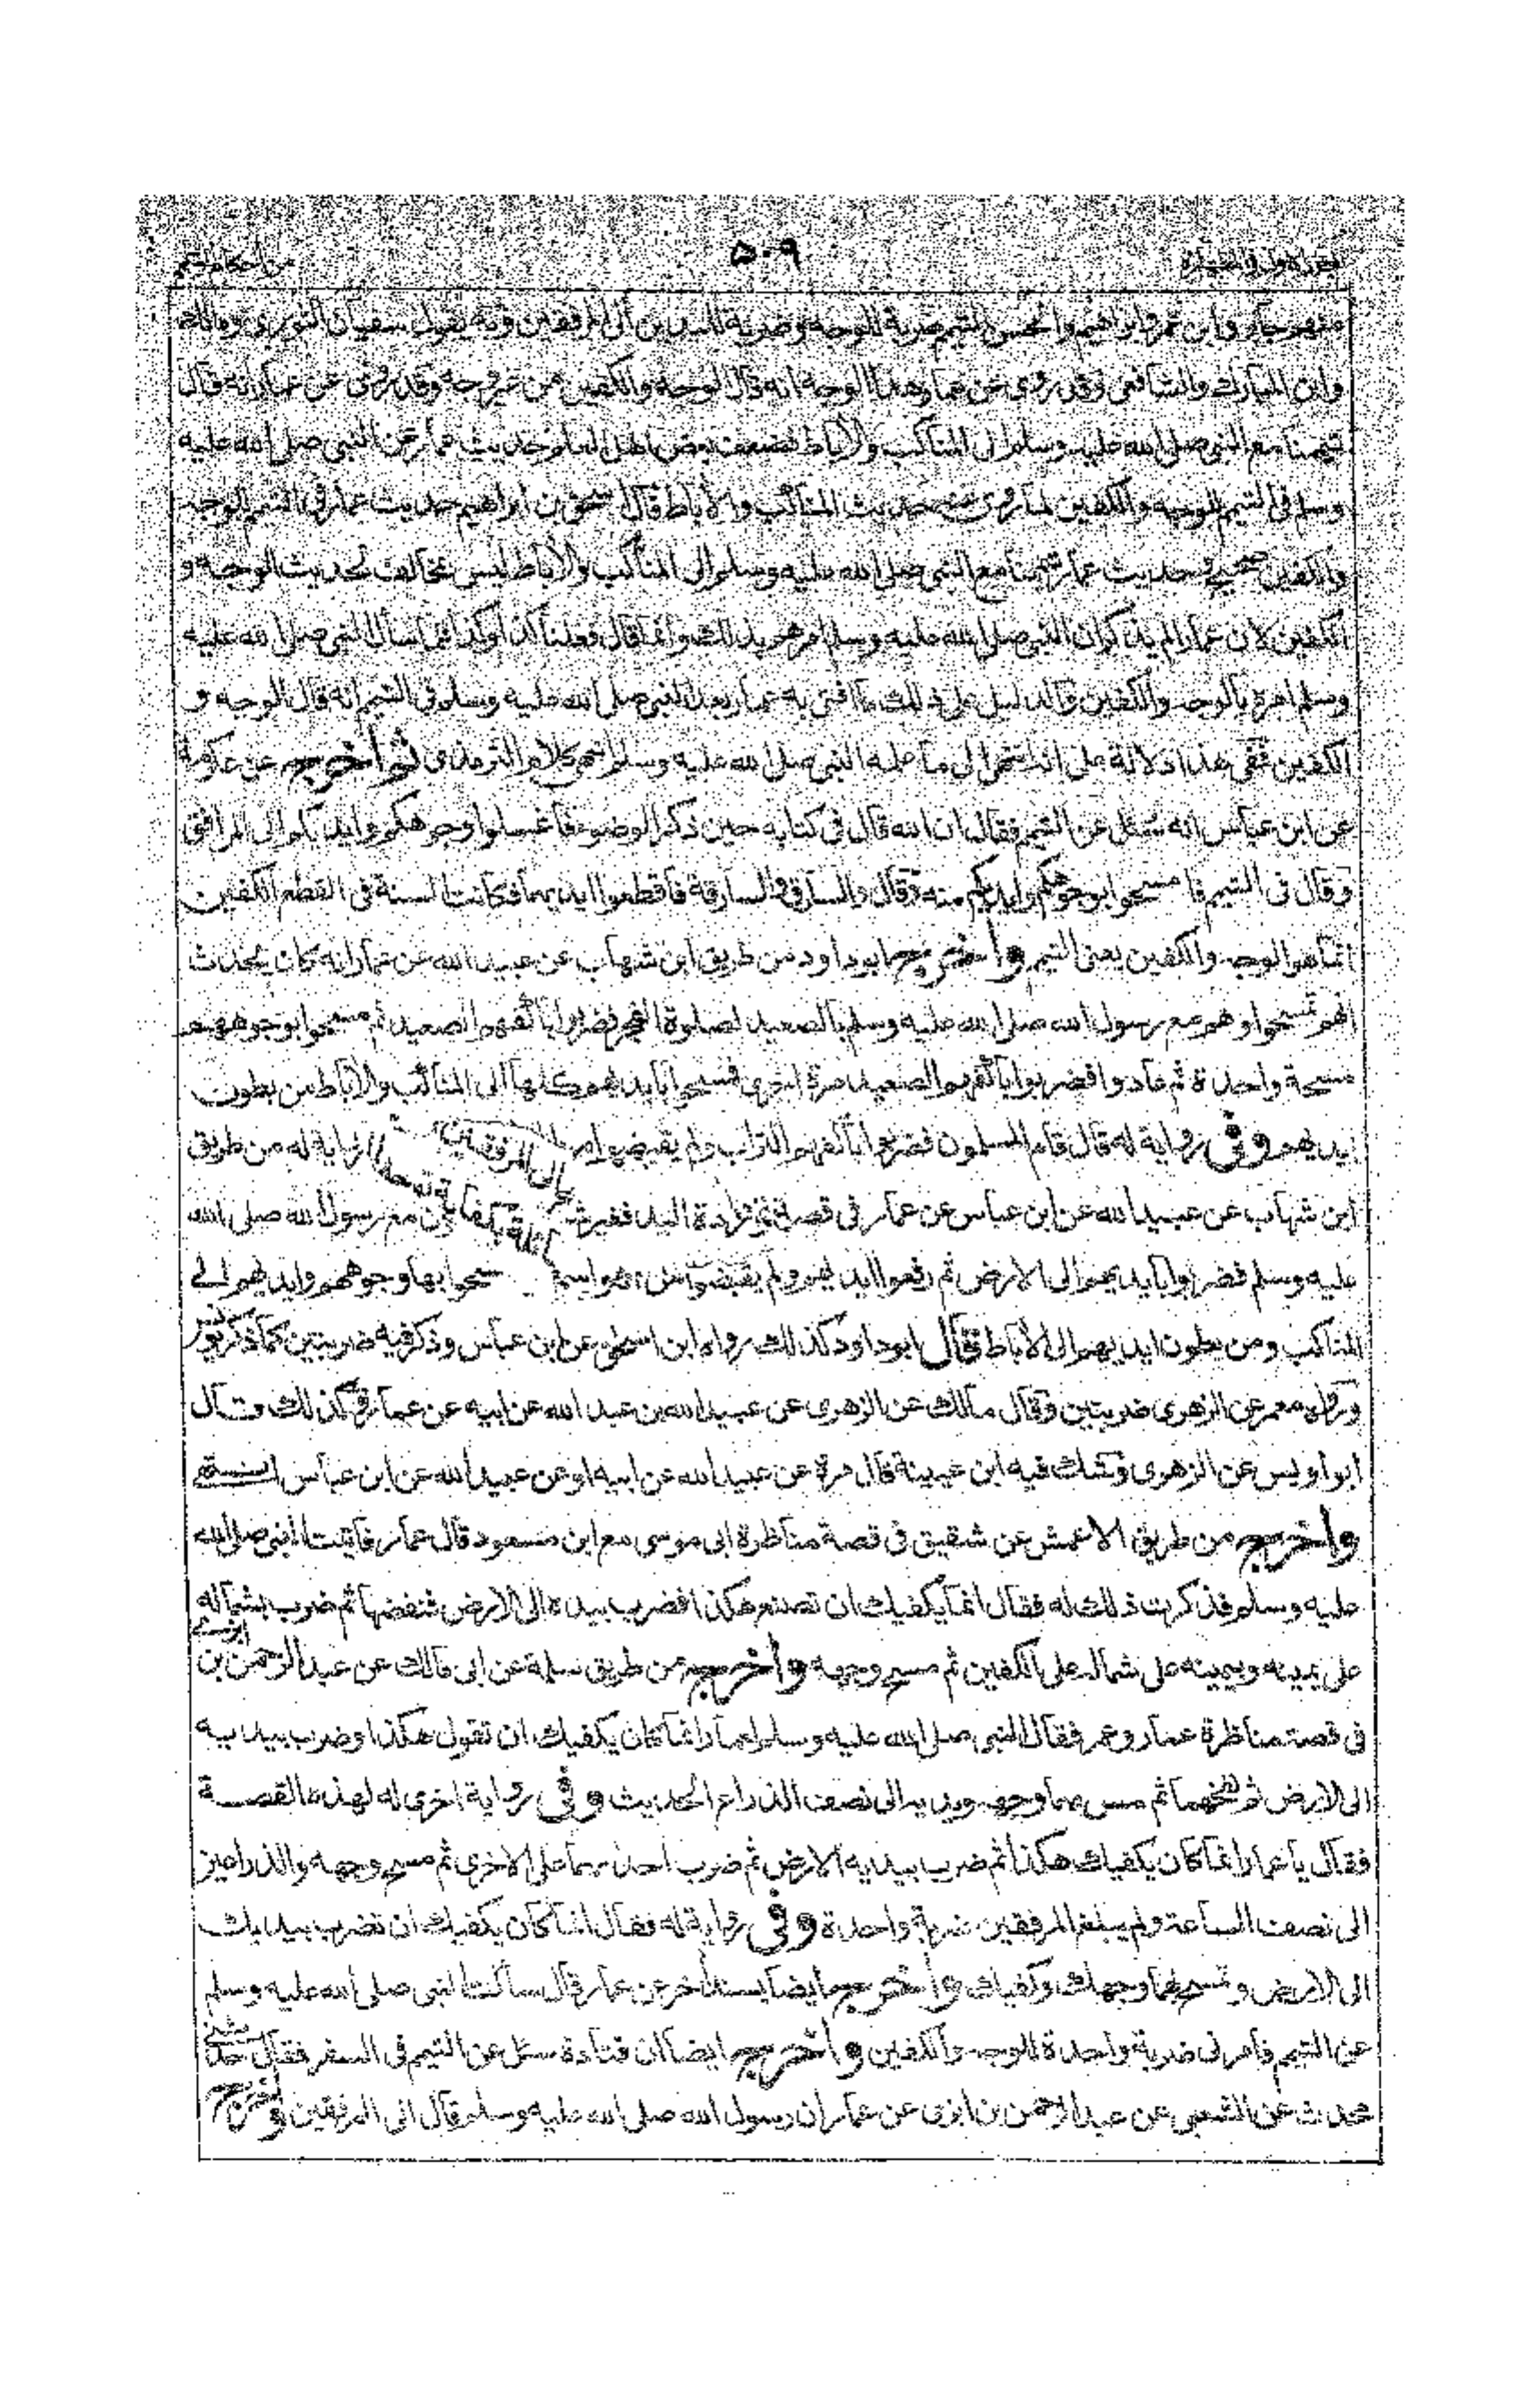 ٥٠٩
منهم جابر وابن عمر وابراهيم والحسن التيمم ضربة للوجه وضربة لليدين الى المرفقين وبه يقول سفيان الثوري ومالك
وابن المبارك والشافعي وقد روى عن عمار هذا الوجه انه قال الوجه والكفين من غير وجه وقد روى عن عمار انه قال
تيممنا مع النبي صلى الله عليه وسلم الى المناكب والآباط فضعف بعض اهل العلم حديث عمار عن النبي صلى الله عليه
وسلم فى التيمم للوجه والكفين لما روى عنه حديث المناكب والآباط قال اسحق بن ابراهيم حديث عمار فى التيمم للوجه
والكفين صحيح وحديث عمار تيممنا مع النبي صلى الله عليه وسلم الى المناكب والآباط ليس بمخالف لحديث الوجه و
الكفين لان عمارا لم يذكر ان النبي صلى الله عليه وسلم امرهم بذلك وانما قال فعلنا كذا وكذا فلما سأل النبي صلى الله عليه
وسلم امره بالوجه والكفين والدليل على ذلك ما افتى به عمار بعد النبي صلى الله عليه وسلم فى التيمم انه قال الوجه و
الكفين ففى هذا دلالة على انه انتهى الى ما علمه النبي صلى الله عليه وسلم انتهى كلام الترمذى ثم أخرج عن عكرمة
عن ابن عباس انه سئل عن التيمم فقال ان الله قال فى كتابه حين ذكر الوضوء فاغسلوا وجوهكم وايديكم الى المرافق
وقال فى التيمم فامسحوا بوجوهكم وايديكم منه وقال والسارق والسارقة فاقطعوا ايديهما فكانت السنة فى القطع الكفين
انما هو الوجه والكفين يعنى التيمم وأخرج ابو داود من طريق ابن شهاب عن عبيد الله عن عمار انه كان يحدث
انهم تمسحوا وهم مع رسول الله صلى الله عليه وسلم بالصعيد لصلوة الفجر فضربوا باكفهم الصعيد ثم مسحوا بوجوههم
مسحة واحدة ثم عادوا فضربوا باكفهم الصعيد مرة اخرى فمسحوا بايديهم كلها الى المناكب والآباط من بطون
ايديهم وفى رواية له قال قام المسلمون فضربوا باكفهم التراب ولم يقبضوا من رواية له من طريق
ابن شهاب عن عبيد الله عن ابن عباس عن عمار فى قصة مع رسول الله صلى الله
عليه وسلم فضربوا بايديهم الى الارض ثم رفعوا ايديهم ولم يقبضوا من بها وجوههم وايديهم الى
المناكب ومن بطون ايديهم الى الآباط وقال ابو داود كذلك رواه ابن اسحق عن ابن عباس وذكر فيه ضربتين كما ذكر يونس
ورواه معمر عن الزهرى ضربتين وقال مالك عن الزهرى عن عبيد الله بن عبد الله عن ابيه عن عمار وكذلك وقال
ابو اويس عن الزهرى وشك فيه ابن عيينة قال مرة عن عبيد الله عن ابيه او عن عبيد الله عن ابن عباس انتهى
وأخرج من طريق الاعمش عن شقيق فى قصة مناظرة ابى موسى مع ابن مسعود قال عمار فاتيت النبي صلى الله
عليه وسلم فذكرت ذلك له فقال انما يكفيك ان تصنع هكذا فضرب بيده الى الارض فنفضها ثم ضرب بشماله
على يمينه وبيمينه على شماله على الكفين ثم مسح وجهه وأخرج من طريق سلمة عن ابى مالك عن عبد الرحمن بن ابزى
فى قصة مناظرة عمار وعمر فقال النبي صلى الله عليه وسلم يا عمار انما كان يكفيك ان تقول هكذا وضرب بيديه
الى الارض ثم نفخهما ثم مس بهما وجهه ويديه الى نصف الذراع الحديث وفى رواية اخرى له لهذه القصة
فقال يا عمار انما كان يكفيك هكذا ثم ضرب بيديه الارض ثم ضرب احدهما على الاخرى ثم مسح وجهه والذراعين
الى نصف الساعد ولم يبلغ المرفقين ضربة واحدة وفى رواية له فقال انما كان يكفيك ان تضرب بيديك
الى الارض وتمسح بهما وجهك وكفيك وأخرج ايضا بسند آخر عن عمار قال سألت النبي صلى الله عليه وسلم
عن التيمم فأمرنى ضربة واحدة للوجه والكفين وأخرج ايضا ان قتادة سئل عن التيمم فى السفر فقال حدثنى
محدث عن الشعبى عن عبد الرحمن بن ابزى عن عمار ان رسول الله صلى الله عليه وسلم قال الى المرفقين وأخرج